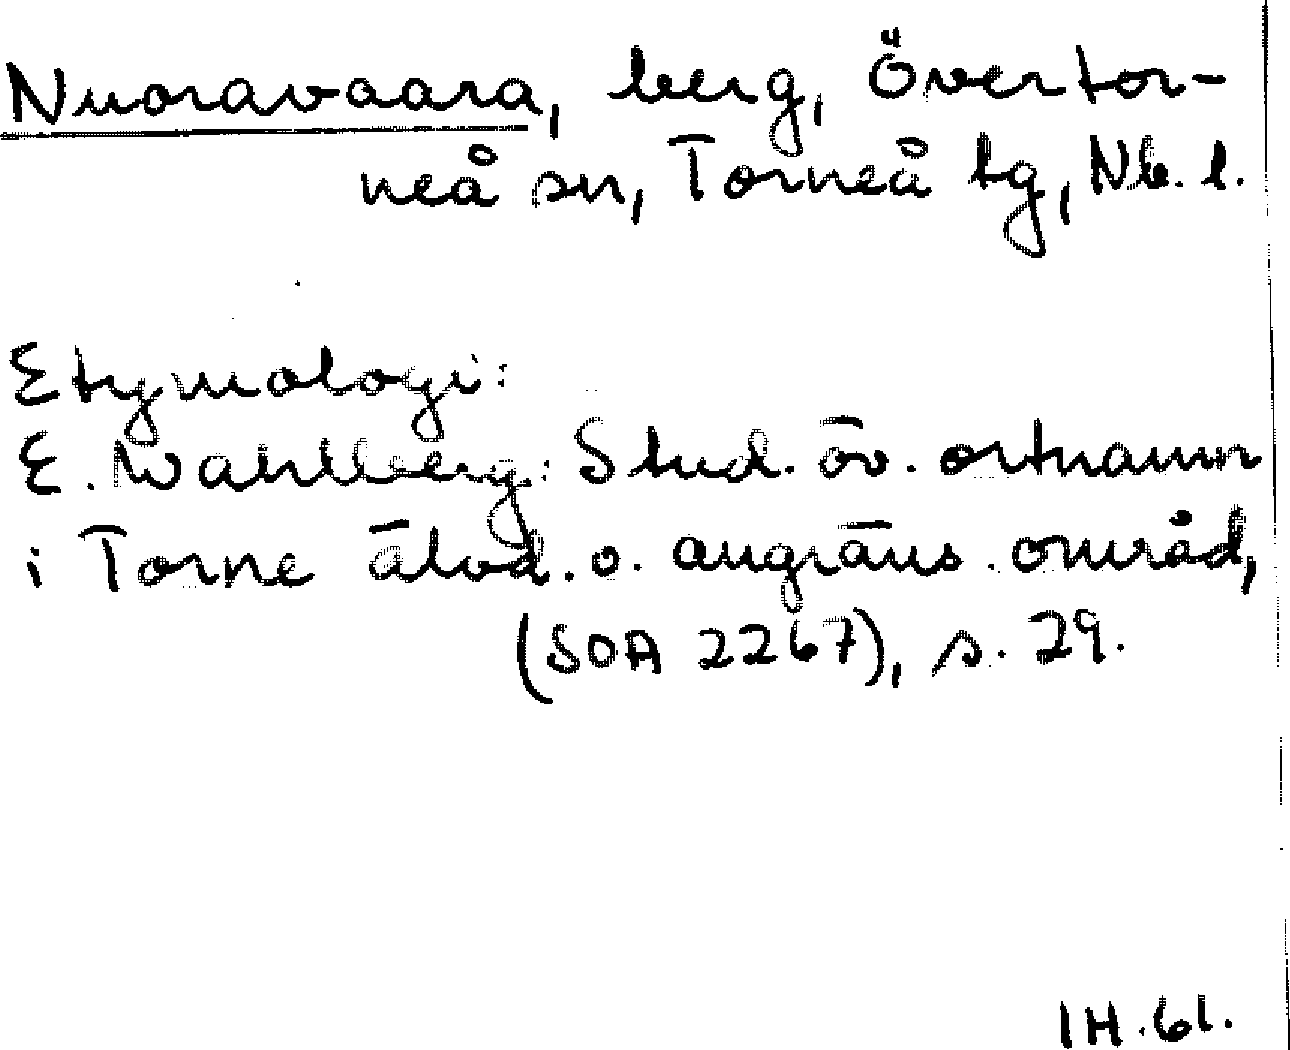 Nuoravaara, berg, Övertor-
neå sn, Torneå tg, Nb. l.
Etymologi:
E. Wahlberg: Stud. öv. ortnamn
i Torne älvd. o. angräns. områd,
(SOA 2267), s. 29.
IH.61.